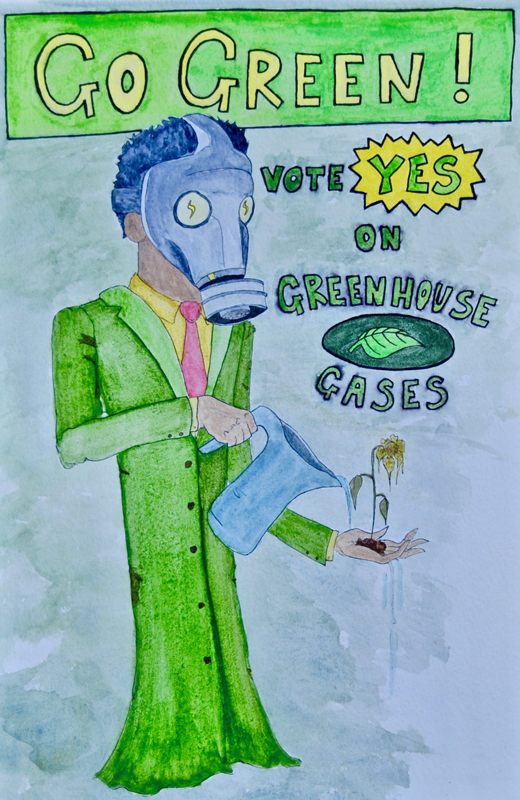 GO GREEN!
VOTE YES
ON
GREENHOUSE
GASES